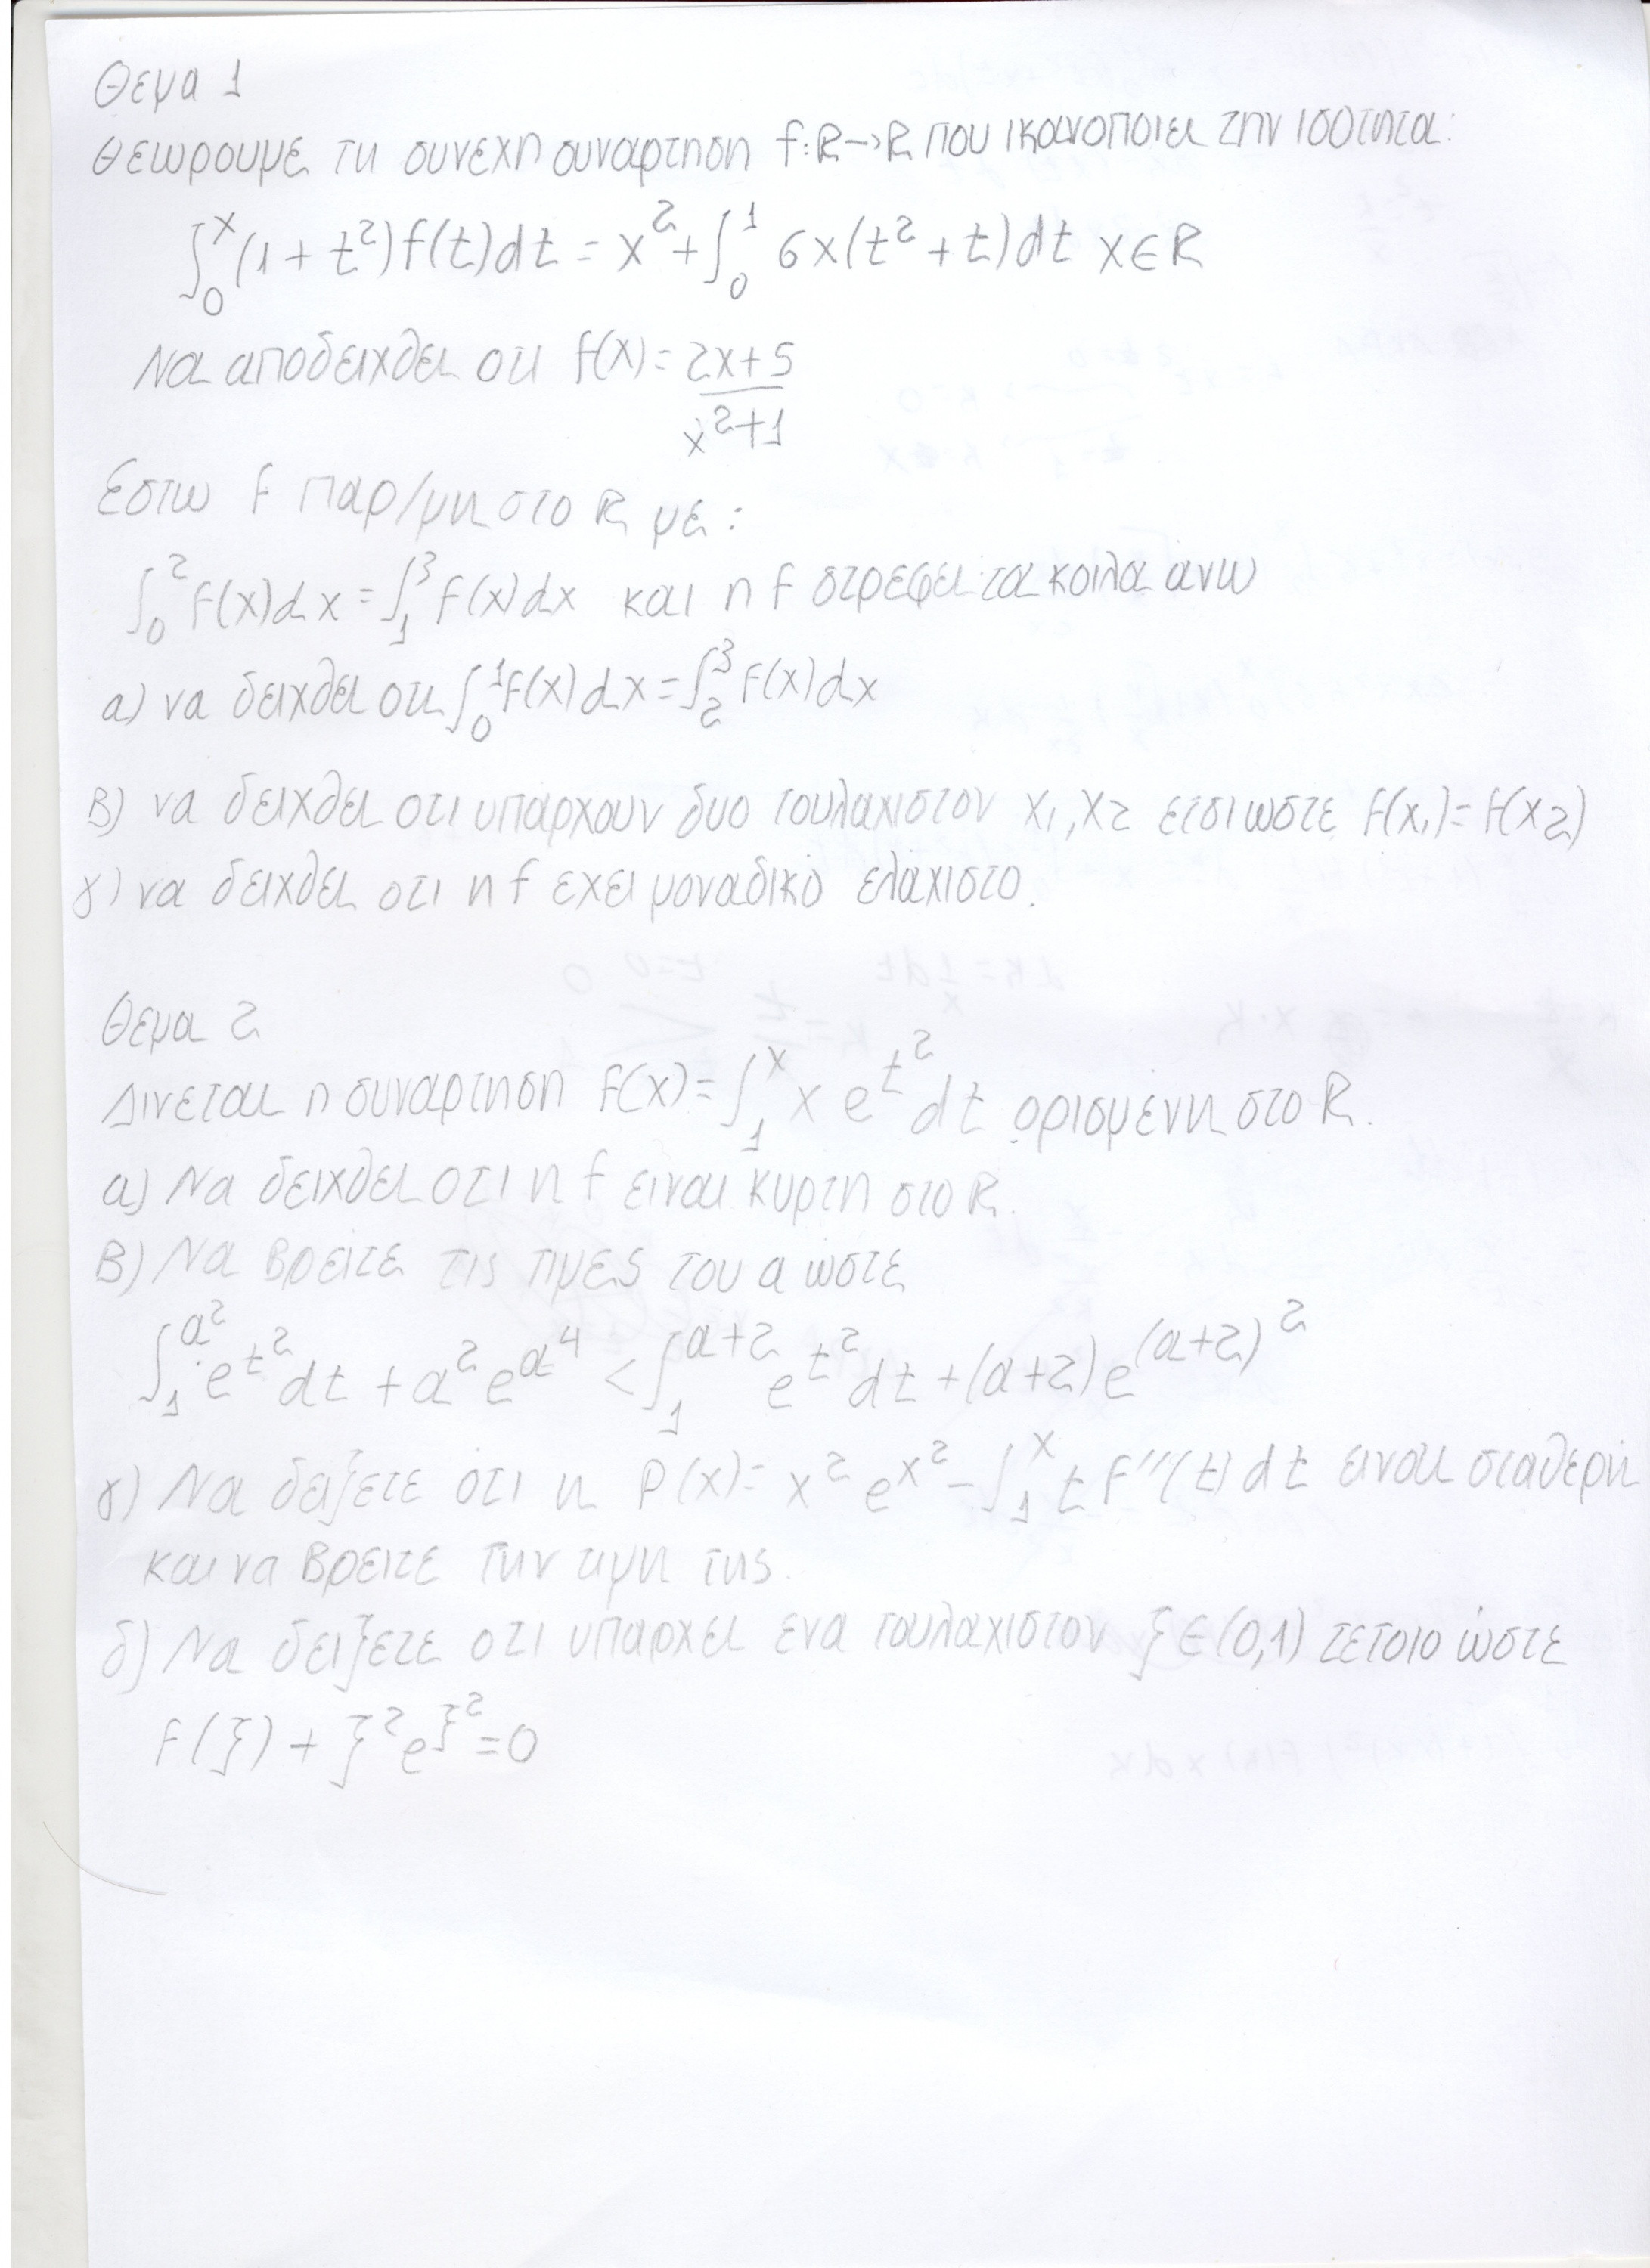 Θεμα 1
Θεωρουμε τη συνεχη συναρτηση f:R→R που ικανοποιει την ισοτητα:
∫₀ˣ(1+t²)f(t)dt = x²+∫₀¹ 6x(t²+t)dt x∈R
Να αποδειχθει οτι f(x)= (2x+5)/(x²+1)
Εστω f παρ/μη στο R με:
∫₀² f(x)dx=∫₁³ f(x)dx και η f στρεφει τα κοιλα ανω
α) να δειχθει οτι ∫₀¹f(x)dx=∫₂³ f(x)dx
Β) να δειχθει οτι υπαρχουν δυο τουλαχιστον x₁,x₂ ετσι ωστε f(x₁)=f(x₂)
γ) να δειχθει οτι η f εχει μοναδικό ελάχιστο.
Θεμα 2
Δινεται η συναρτηση f(x)=∫₁ˣ x e^{t²}dt ορισμένη στο R.
α) Να δειχθει οτι η f ειναι κυρτη στο R.
Β) Να Βρειτε τις τιμες του α ώστε
∫₁^{α²} e^{t²}dt +α²e^{α⁴} <∫₁^{α+2} e^{t²}dt +(α+2)e^{(α+2)²}
γ) Να δειξετε ότι η P(x)= x²e^{x²}-∫₁ˣ t f''(t)dt ειναι σταθερη
και να Βρειτε την τιμη της.
δ) Να δειξετε οτι υπαρχει ενα τουλαχιστον ξ∈(0,1) τετοιο ώστε
f(ξ)+ξ²e^{ξ²}=0